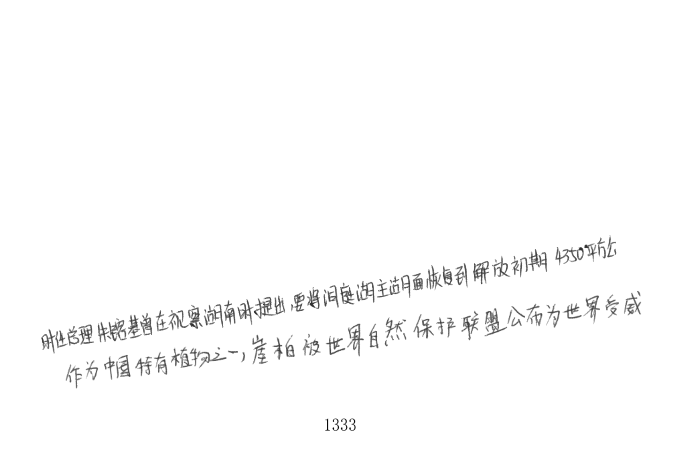 时任总理朱镕基曾在视察湖南时提出,要将洞庭湖主湖面恢复到解放初期4350平方公
作为中国特有植物之一,崖柏被世界自然保护联盟公布为世界受威
1333